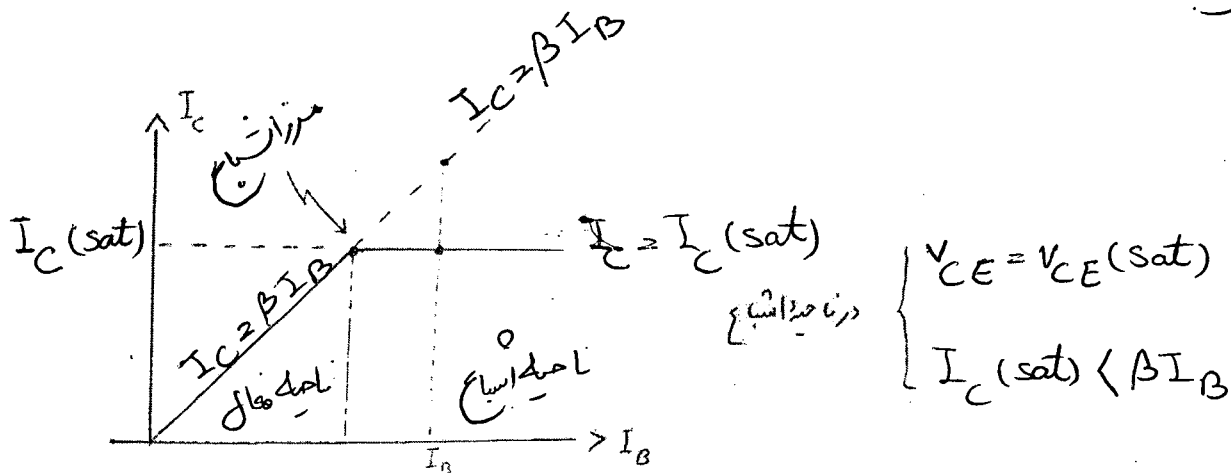 I_C = β I_B
I_C
مرز اشباع
I_C (sat)
I_C = I_C (sat)
I_C = β I_B
ناحیه فعال
ناحیه اشباع
در ناحیه اشباع
V_CE = V_CE (sat)
I_C (sat) < β I_B
I_B
I_B